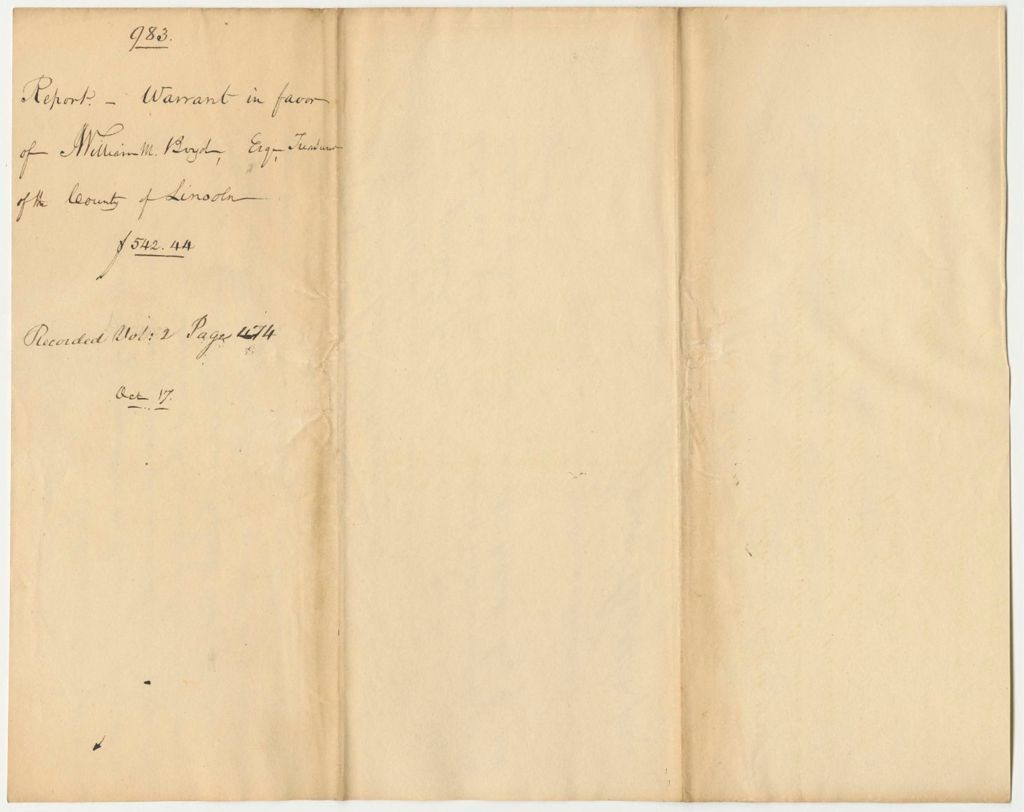 983.
Report. - Warrant in favor
of William M. Boyd, Esq. Treasurer
of the County of Lincoln
$542.44
Recorded Vol: 2 Page 474
Oct 17.